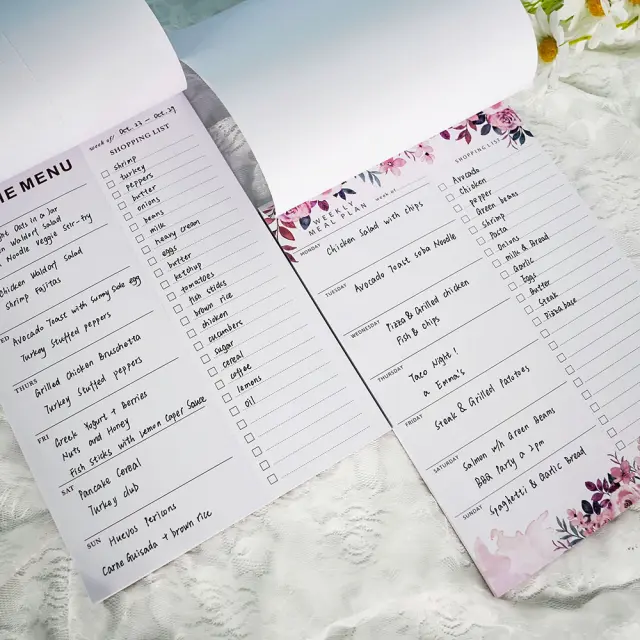 IE MENU
Oats in a Jar
Waldorf Salad
Noodle Veggie Stir-fry
Chicken Waldorf Salad
Shrimp Fajitas
Avocado Toast with Sunny Side egg
Turkey Stuffed peppers
THURS
Grilled Chicken Bruschetta
Turkey Stuffed peppers
FRI
Greek Yogurt + Berries
Nuts and Honey
Fish sticks with Lemon Caper Sauce
SAT
Pancake Cereal
Turkey club
SUN
Huevos Pericons
Carne Guisada + brown rice
Week of: Oct. 23 - Oct. 29
SHOPPING LIST
shrimp
turkey
peppers
butter
onions
beans
milk
heavy cream
eggs
butter
ketchup
tomatoes
fish sticks
brown rice
chicken
cucumbers
sugar
cereal
coffee
lemons
oil
WEEKLY
MEAL PLAN
WEEK OF:
MONDAY
Chicken Salad with chips
TUESDAY
Avocado Toast soba Noodle
WEDNESDAY
Pizza & Grilled chicken
Fish & chips
THURSDAY
Taco Night!
@ Emma's
FRIDAY
Steak & Grilled Potatoes
SATURDAY
Salmon w/h Green Beans
BBQ Party @ 2pm
SUNDAY
Spaghetti & Garlic bread
SHOPPING LIST
Avocado
Chicken
pepper
Green beans
Shrimp
Pasta
Onions
milk & Bread
Garlic
Eggs
Butter
Steak
Pizza base